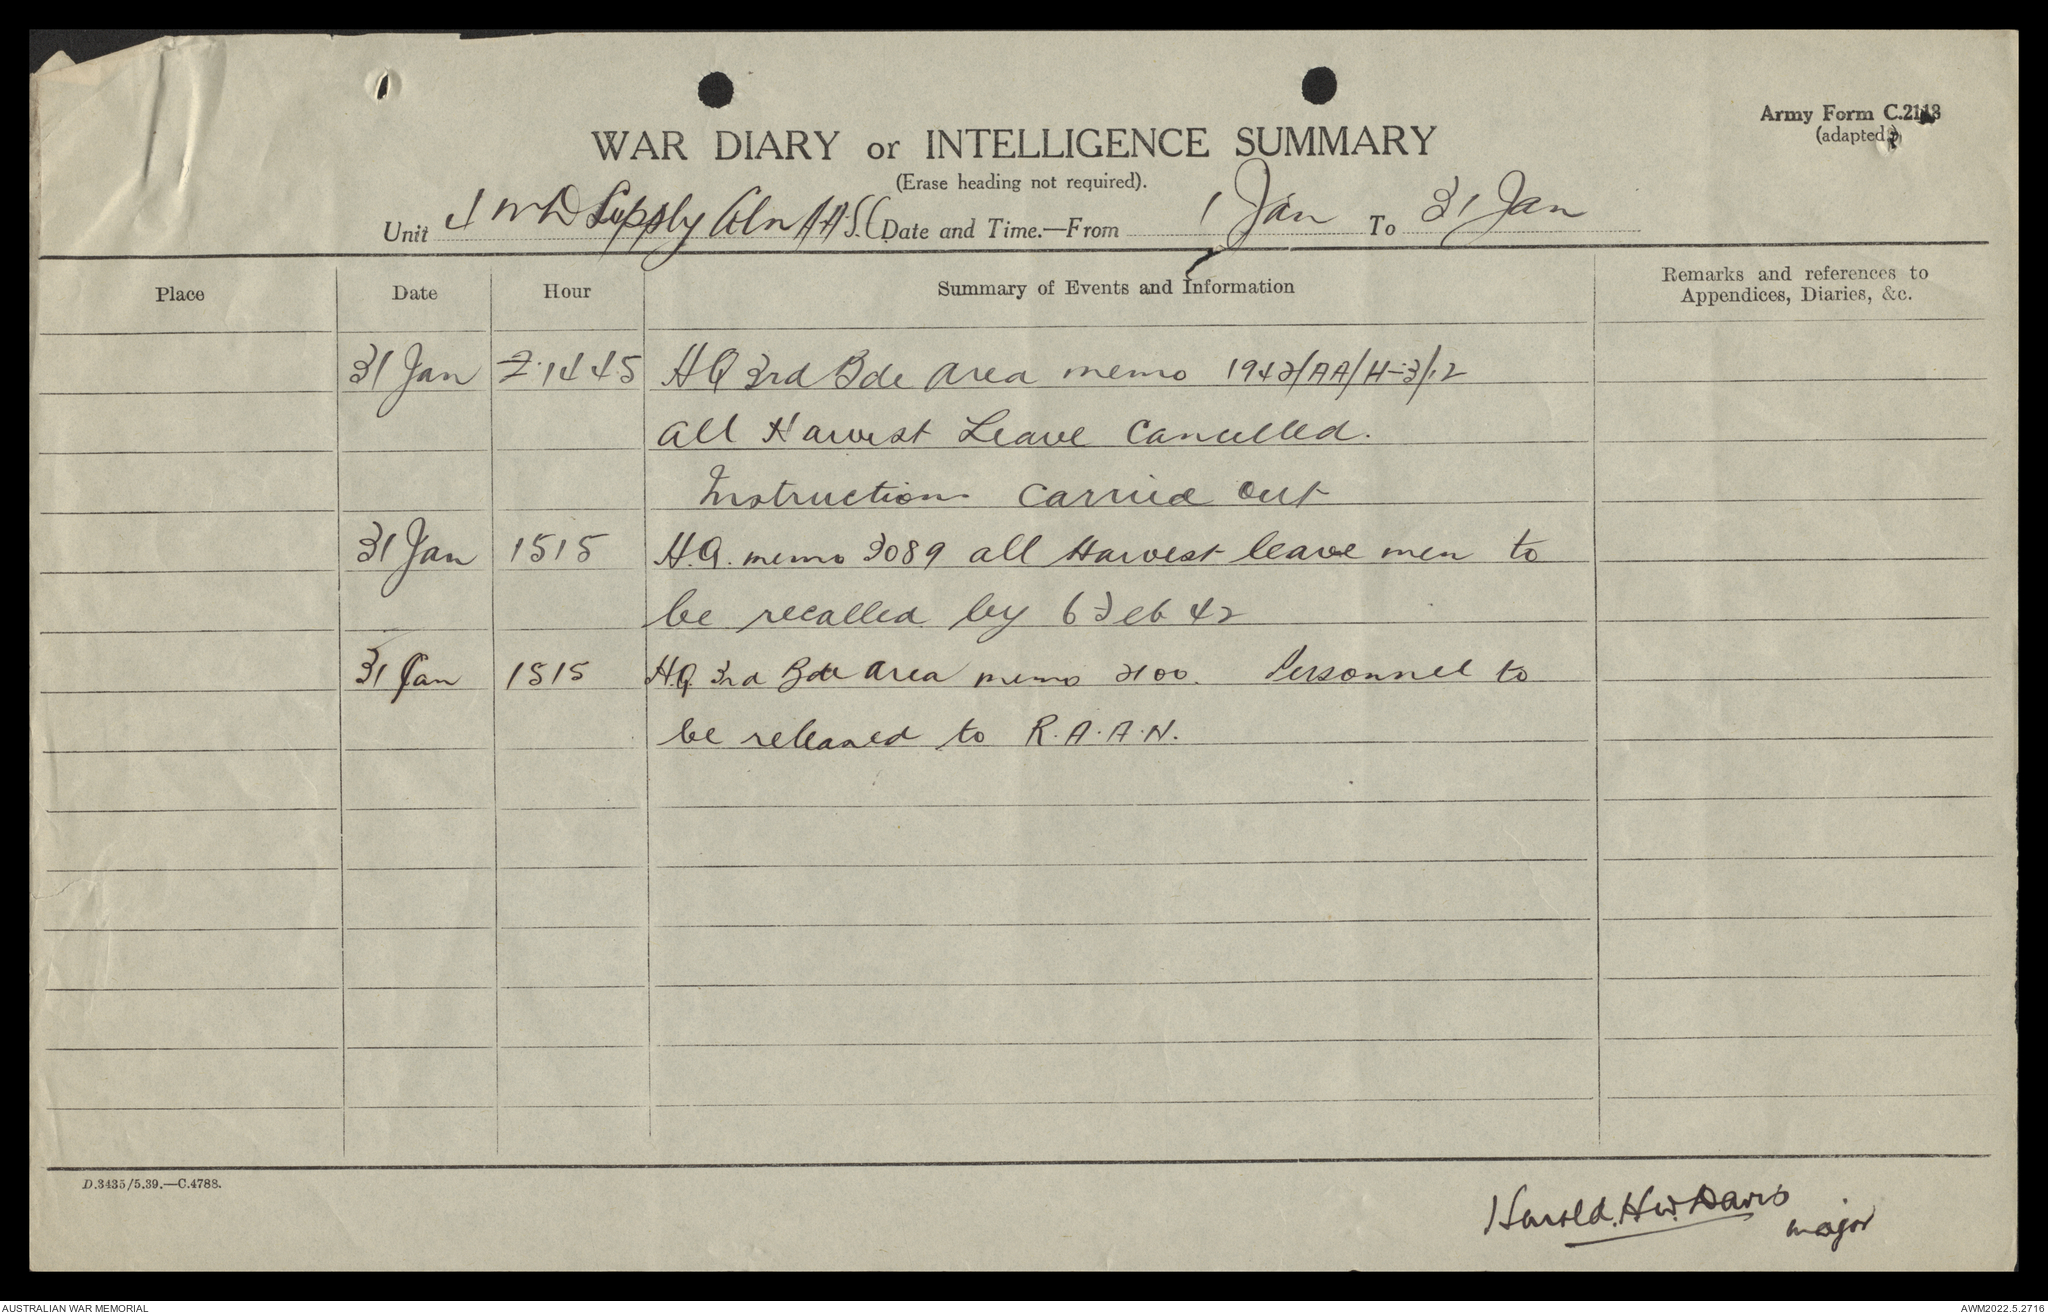 Army Form C.2118
(adapted)
WAR DIARY or INTELLIGENCE SUMMARY
(Erase heading not required).
Unit 4 MD Supply Coln A.A.S.C Date and Time.—From 1 Jan To 31 Jan
Place Date Hour Summary of Events and Information Remarks and references to
Appendices, Diaries, &c.
31 Jan Z.1445 HQ 3rd Bde Area memo 1942/AA/H-3/12
all Harvest Leave Cancelled.
Instructions carried out
31 Jan 1515 H.Q. memo 2089 all Harvest leave men to
be recalled by 6 Feb 42
31 Jan 1515 H.Q 3rd Bde Area memo 2100. Personnel to
be released to R.A.A.N.
D.3435/5.39.—C.4788.
Harold. H.W. Davis
major
AUSTRALIAN WAR MEMORIAL
AWM2022.5.2716